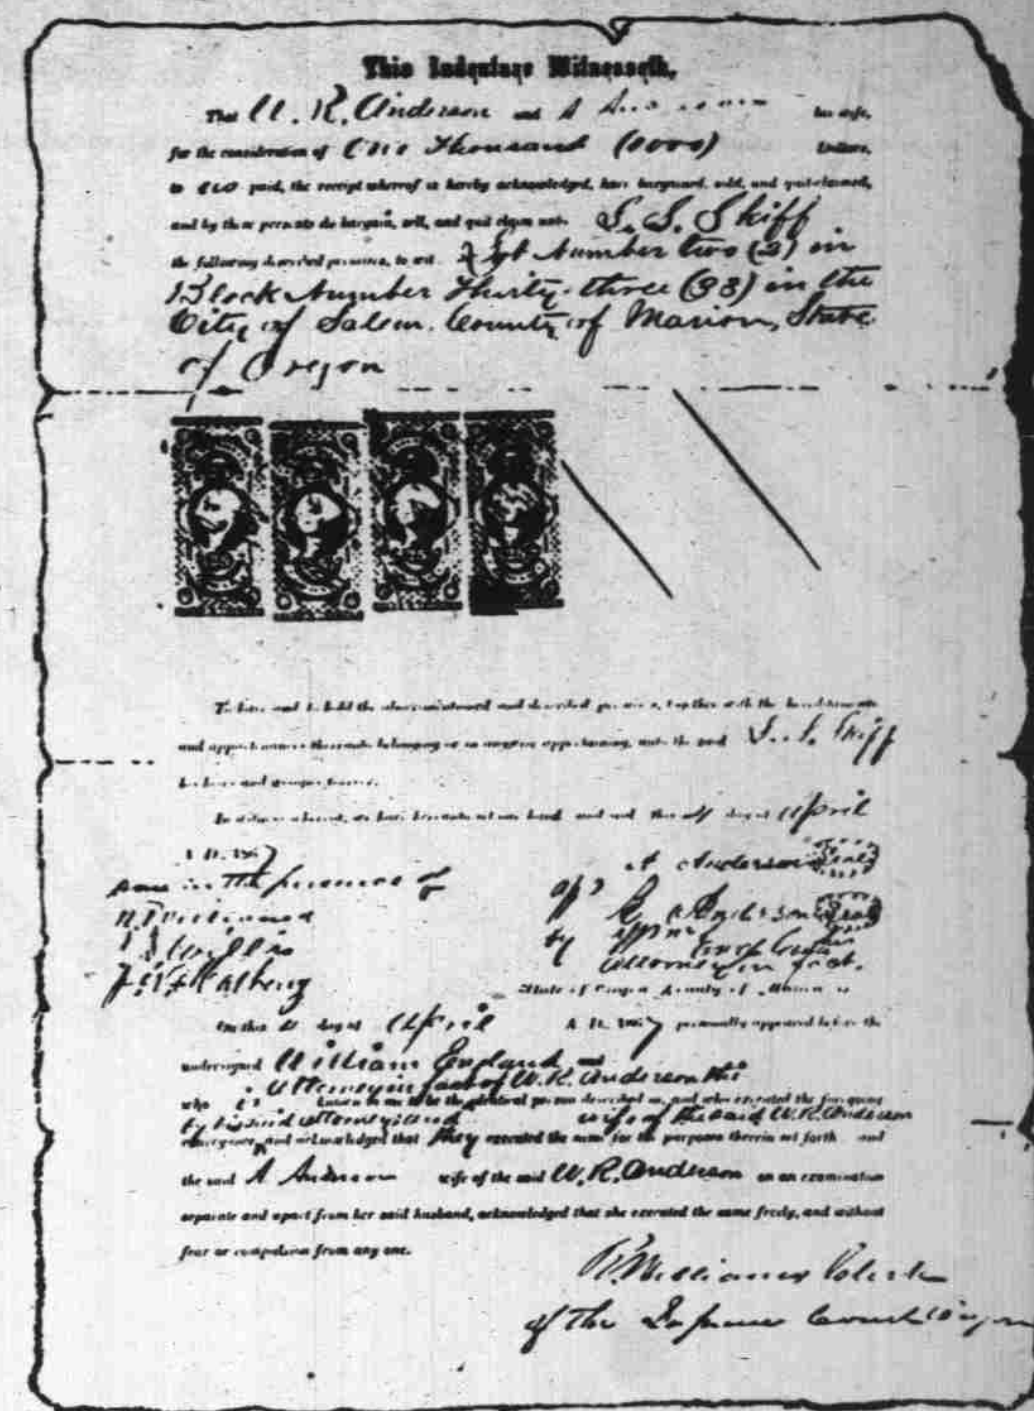 This Indenture Witnesseth,
That W. R. Anderson and A Anderson his wife,
for the consideration of One Thousand (1000) Dollars,
to paid, the receipt whereof is hereby acknowledged, have bargained, sold, and quit-claimed,
and by these presents do bargain, sell, and quit claim unto S. S. Skiff
the following described premises, to wit Lot Number two (2) in
Block Number Thirty-three (33) in the
City of Salem. County of Marion, State
of Oregon
To have and to hold the aforementioned and described premises, together with the
and appurtenances thereunto belonging or in anywise appertaining, unto the said S. S. Skiff
his heirs and assigns forever.
In witness whereof, we have hereunto set our hand and seal this day of April
A D. 1867
Done in the presence of
A Anderson Seal
Anderson Seal
by
Attorney in fact.
State of Oregon County of Marion ss
On this day of April A. D. 1867 personally appeared before the
undersigned William England
Attorney in fact of W. R. Anderson
who is known to me to be the identical person described in, and who executed the foregoing
by his said attorney wife of the said W. R. Anderson
conveyance, and acknowledged that they executed the same for the purposes therein set forth and
the said A Anderson wife of the said W. R. Anderson on an examination
separate and apart from her said husband, acknowledged that she executed the same freely, and without
fear or compulsion from any one.
Williams Clerk
of the Supreme Court